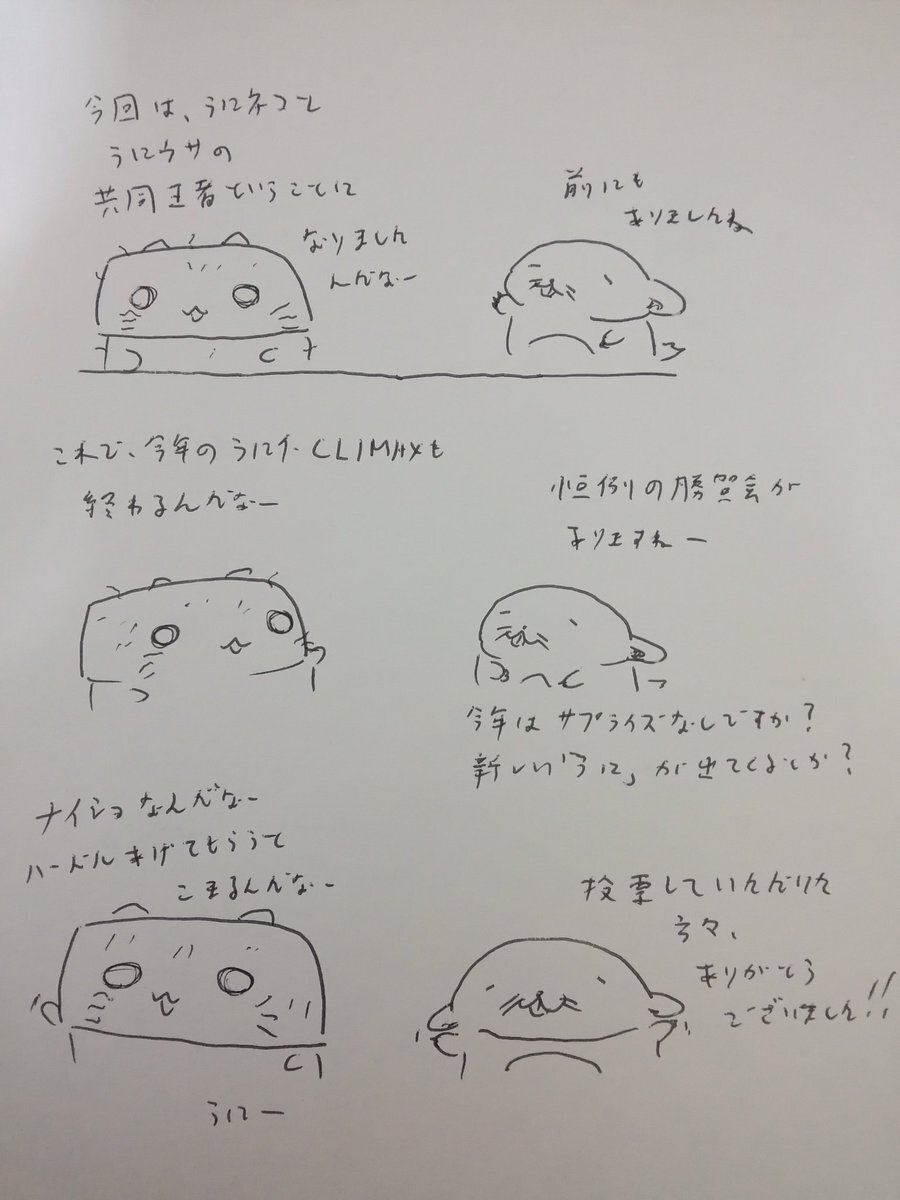 今回は、うにネコと
うにウサの
共同王者ということに
なりました
んだなー
前にも
ありましたね
これで、今年のうにた CLIMAXも
終わるんだなー
恒例の勝賀会が
ありますねー
今年はサプライズなしですか?
新しい「うに」が出てくるとか?
ナイショなんだなー
ハードルあげてもらうと
こまるんだなー
投票していただいた
方々、
ありがとう
ございました!!
うにー